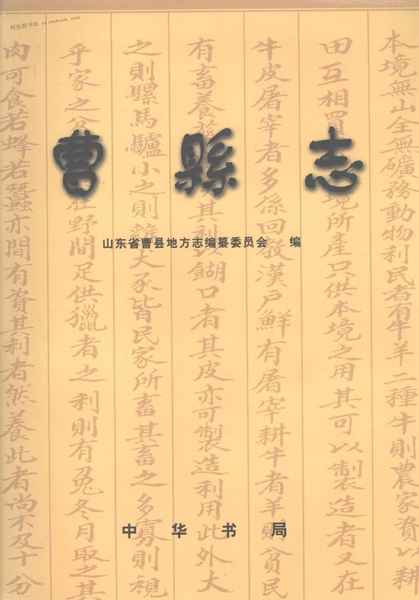 曹縣志
山东省曹县地方志编纂委员会 编
中华书局
本境無山全無礦務動物利民者有牛羊一種則農家資
田互相買境所產只供本境之用其可以製造者在
牛皮屠宰者多係回教漢戶鮮有屠宰耕牛者羊則貧民
有畜養其利以餬口者其皮亦可製造利用此外大
之則騾馬驢小之則犬豕皆民家所畜其畜之多寡則視
乎家之在野間足供獵者之利則有兔冬月取之其
肉可食若蜂若蠶亦間有資其利者然養此者尚不及十分